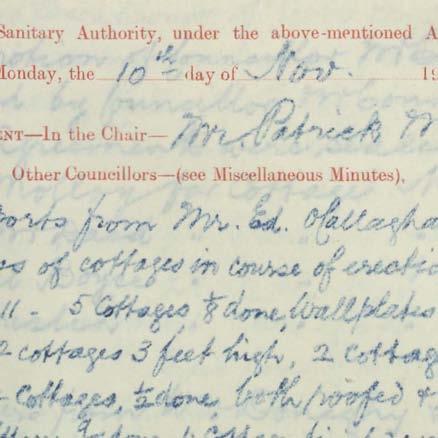 Sanitary Authority, under the above-mentioned A
Monday, the 10th day of Nov. 19
ENT—In the Chair— Mr. Patrick M
Other Councillors—(see Miscellaneous Minutes),
orts from Mr. Ed. O'Callagha
ss of cottages in course of erectio
11 - 5 Cottages ⅞ done, Wallplates
2 cottages 3 feet high, 2 Cottag
Cottages, ½ done, both roofed &
done